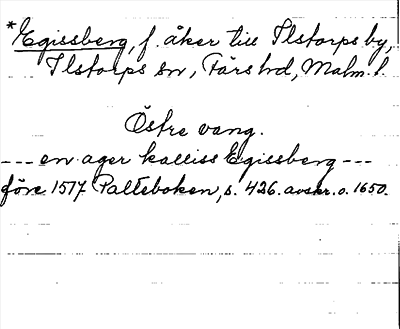 *Egissberg, f. åker till Ilstorps by,
Ilstorps sn, Färs hd, Malm. l.
Östre vang.
--- en ager kalliss Egissberg ---
före 1517 Palteboken, s. 426. avskr. o. 1650.